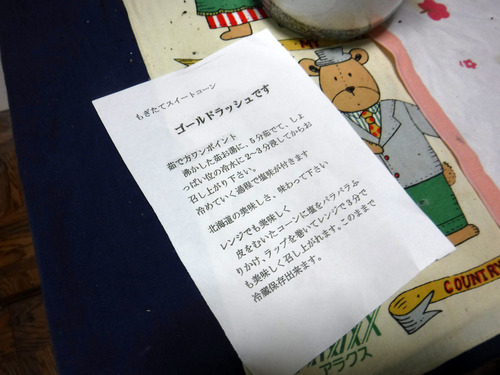 もぎたてスイートコーン
ゴールドラッシュです
茹で方ワンポイント
沸かした茹お湯に、5分茹でて、しょ
っぱい位の冷水に2~3分浸してからお
召し上がり下さい。
冷めていく過程で塩味が付きます
北海道の美味しさ、味わって下さい
レンジでも美味しく
皮をむいたコーンに塩をパラパラふ
りかけ、ラップを巻いてレンジで3分で
も美味しく召し上がれます。このままで
冷蔵保存出来ます。
MY
COUNTRY
アラクス